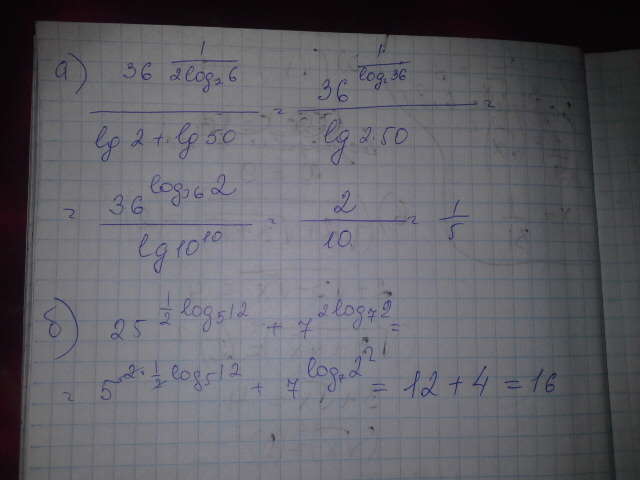 а) 36^(1/(2log₂6)) / (lg 2 + lg 50) = 36^(1/(log₂36)) / (lg 2·50) =
= 36^(log₃₆2) / (lg 10^10) = 2/10 = 1/5
б) 25^(1/2 log₅12) + 7^(2log₇2) =
= 5^(2·1/2 log₅12) + 7^(log₇2²) = 12 + 4 = 16